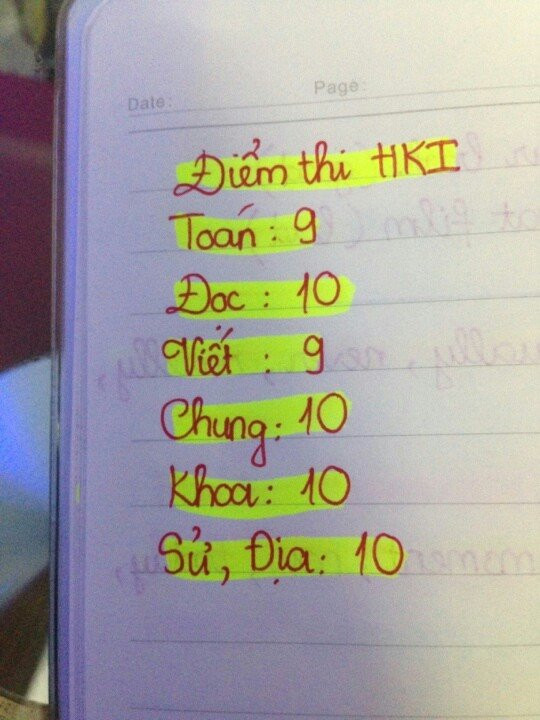 Date: Page:
Điểm thi HKI
Toán: 9
Đọc: 10
Viết: 9
Chung: 10
Khoa: 10
Sử, Địa: 10